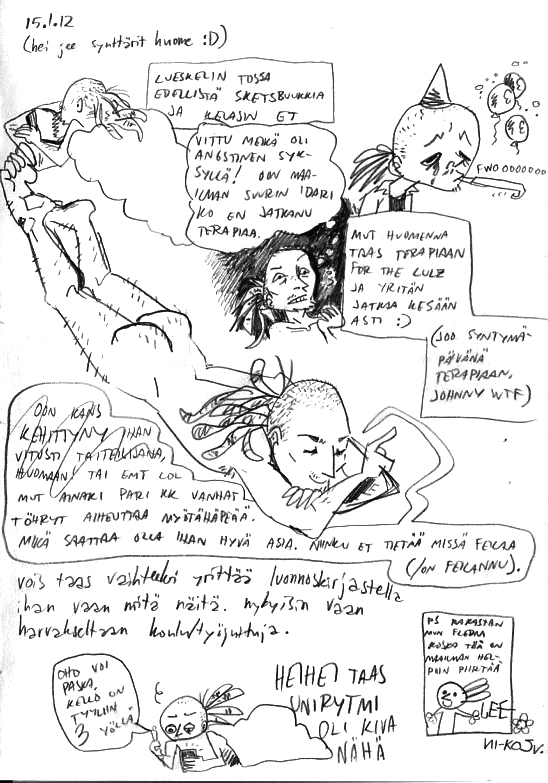 15.1.12
(hei jee synttärit huome :D)
LUESKELIN TOSSA
EDELLISTÄ SKETSBUUKKIA
JA KELASIN ET
VITTU MEIKÄ OLI
ANGSTINEN SYK-
SYLLÄ! OON MAA-
ILMAN SUURIN IDARI
KO EN JATKANU
TERAPIAA.
FWOOOOOOOO
MUT HUOMENNA
TAAS TERAPIAAN
FOR THE LULZ
JA YRITÄN
JATKAA KESÄÄN
ASTI :)
(JOO SYNTYMÄ-
PÄIVÄNÄ
TERAPIAAN,
JOHNNY WTF)
OON KANS
KEHITTYNY IHAN
VITUSTI TAITEILIJANA,
HUOMAAN! TAI EMT LOL
MUT AINAKI PARI KK VANHAT
TÖHRYT AIHEUTTAA MYÖTÄHÄPEÄÄ.
MIKÄ SAATTAA OLLA IHAN HYVÄ ASIA. NIINKU ET TIETÄÄ MISSÄ FEILAA
(/ON FEILANNU).
vois taas vaihteeksi yrittää luonnoskirjastella
ihan vaan mitä näitä. nykyisin vaan
harvakseltaan
PS RAKASTAN
MUN FLEDAA
KOSKA TÄÄ ON
MAAILMAN HEL-
POIN PIIRTÄÄ
OHO VOI
PASKA,
KELLO ON
TYYLIIN
3 YÖLLÄ
HEIHEI TAAS
UNIRYTMI
OLI KIVA
NÄHÄ